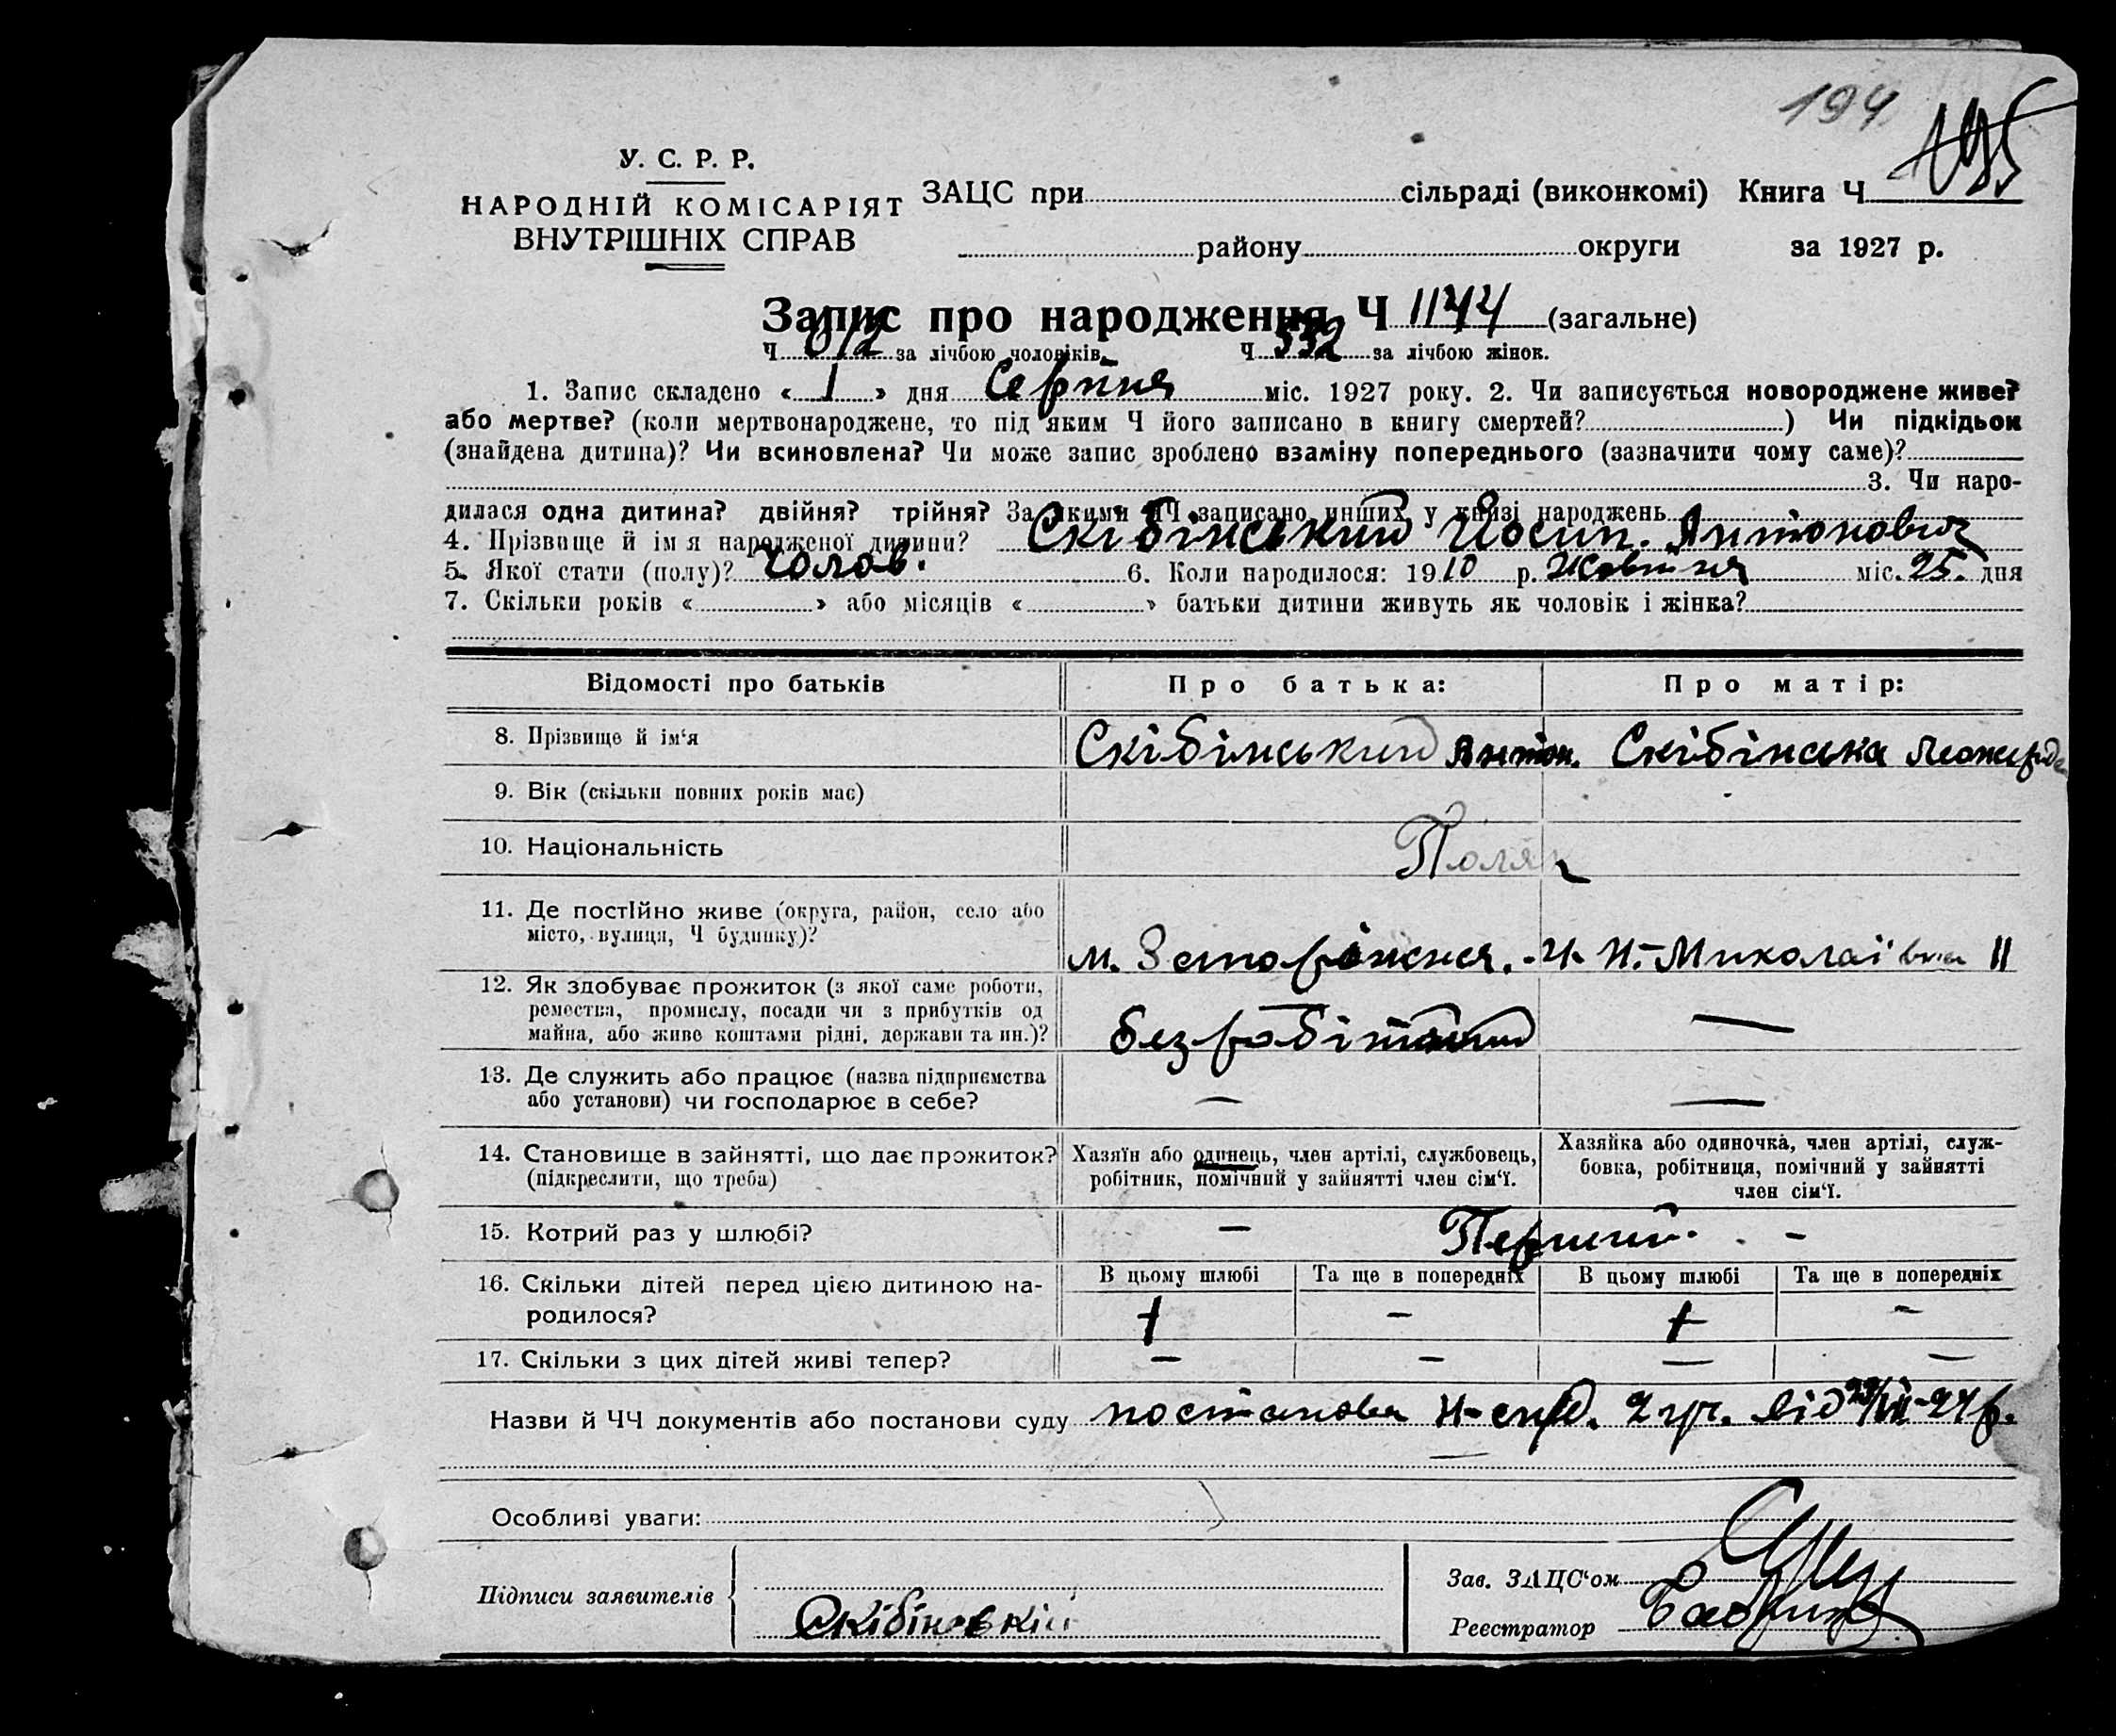 194
195
У. С. Р. Р.
НАРОДНІЙ КОМІСАРІЯТ
ВНУТРІШНІХ СПРАВ
ЗАЦС при сільраді (виконкомі) Книга Ч
району округи за 1927 р.
Запис про народження Ч 1144 (загальне)
Ч 612 за лічбою чоловіків Ч 532 за лічбою жінок.
1. Запис складено « 1 » дня Серпня міс. 1927 року. 2. Чи записується новороджене живе?
або мертве? (коли мертвонароджене, то під яким Ч його записано в книгу смертей? ) Чи підкідьок
(знайдена дитина)? Чи всиновлена? Чи може запис зроблено взаміну попереднього (зазначити чому саме)?
3. Чи наро-
дилася одна дитина? двійня? трійня? За якими ЧЧ записано инших у книзі народжень
4. Прізвище й ім я народженої дитини? Скібінський Йосип. Антонович
5. Якої стати (полу)? Чолов. 6. Коли народилося: 1910 р. Жовтня міс. 25. дня
7. Скільки років « » або місяців « » батьки дитини живуть як чоловік і жінка?
Відомості про батьків Про батька: Про матір:
8. Прізвище й ім‘я Скібінський Антон. Скібінська
9. Вік (скільки повних років має)
10. Національність Поляк
11. Де постійно живе (округа, район, село або
місто, вулиця, Ч будинку)?
м. Запоріжжя. Миколаївка 11
12. Як здобуває прожиток (з якої саме роботи,
ремества, промислу, посади чи з прибутків од
майна, або живе коштами рідні, держави та ин.)?
безробітний —
13. Де служить або працює (назва підприємства
або установи) чи господарює в себе?
— —
14. Становище в зайнятті, що дає прожиток?
(підкреслити, що треба)
Хазяїн або одинець, член артілі, службовець,
робітник, помічний у зайнятті член сім‘ї.
Хазяйка або одиночка, член артілі, служ-
бовка, робітниця, помічний у зайнятті
член сім‘ї.
15. Котрий раз у шлюбі? — Перший. —
16. Скільки дітей перед цією дитиною на-
родилося?
В цьому шлюбі Та ще в попередніх В цьому шлюбі Та ще в попередніх
— —
17. Скільки з цих дітей живі тепер? — — — —
Назви й ЧЧ документів або постанови суду постанова 2 від
Особливі уваги:
Підписи заявителів
Скібіновкій
Зав. ЗАЦС‘ом
Реєстратор